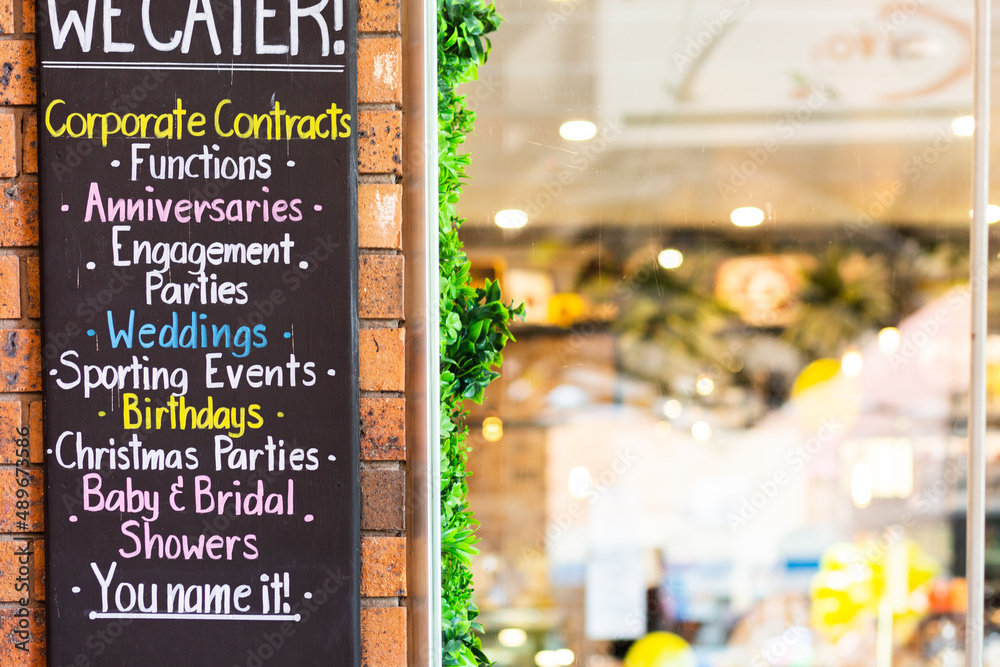 WE CATER!
Corporate Contracts
· Functions ·
· Anniversaries ·
· Engagement
Parties ·
· Weddings ·
· Sporting Events ·
· Birthdays ·
· Christmas Parties ·
· Baby & Bridal
Showers ·
· You name it! ·
Adobe Stock | #489673586